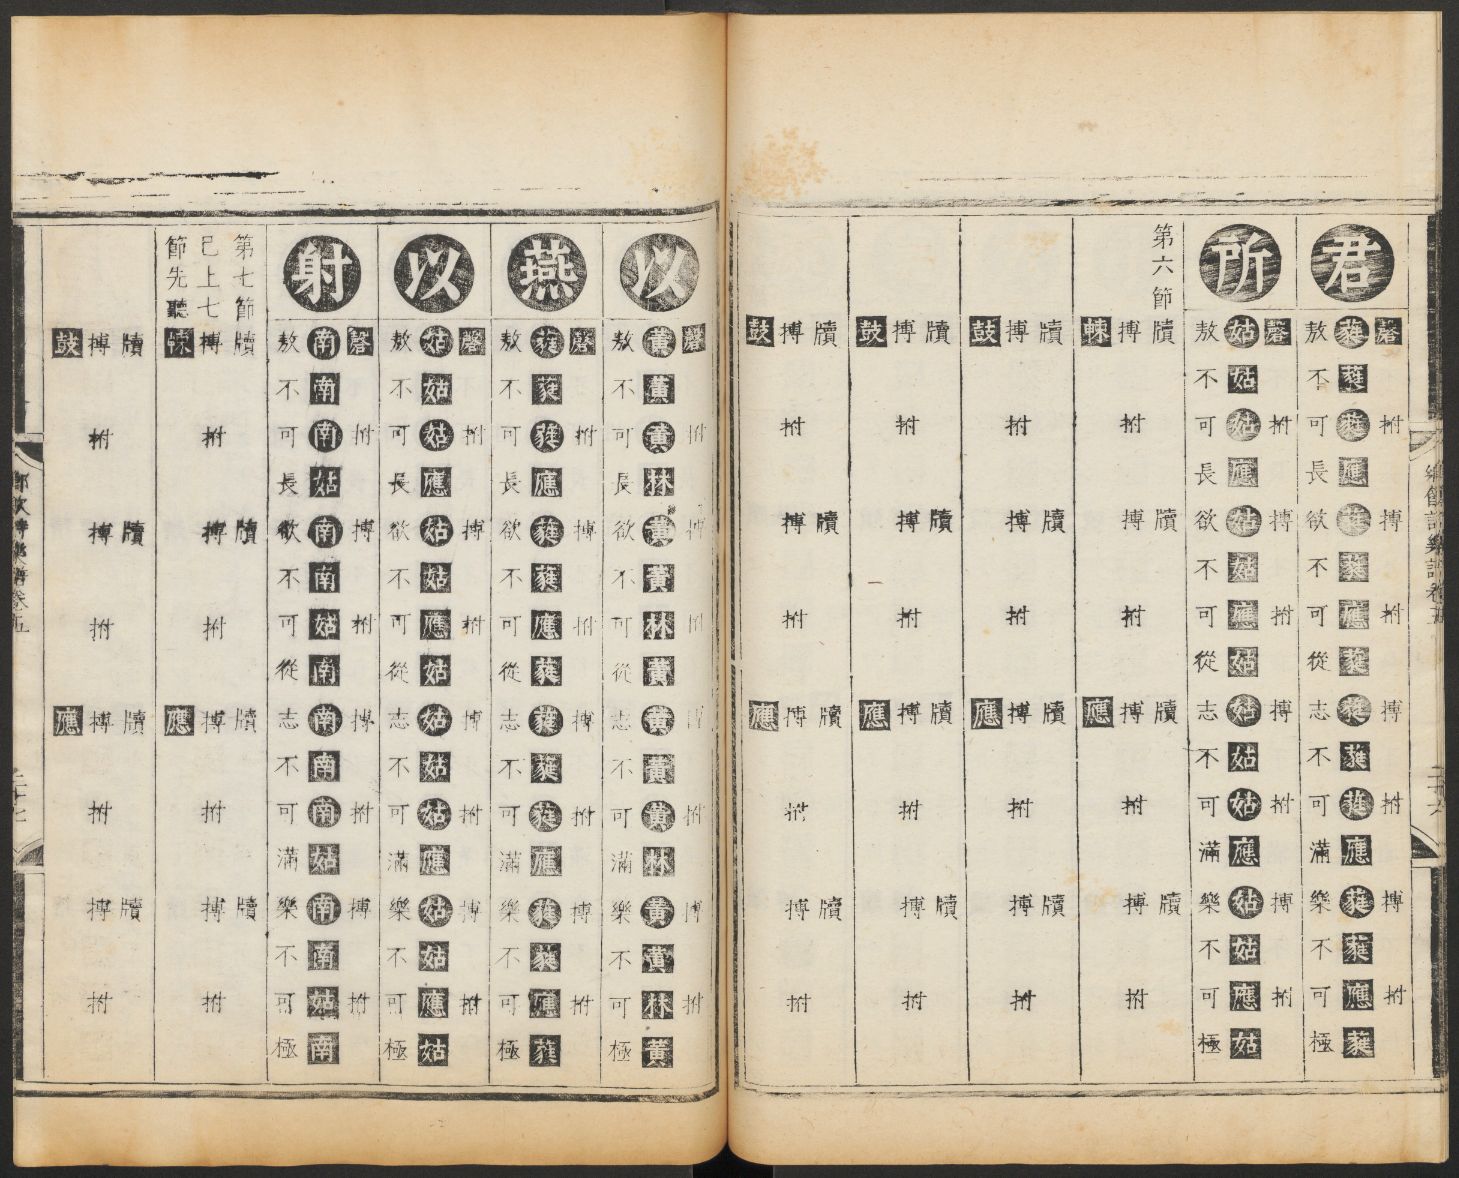 鄉飲詩樂譜卷五
二十六
君
磬拊搏拊搏拊搏拊
蕤蕤蕤應蕤蕤應蕤蕤蕤蕤應蕤蕤應蕤
敖不可長欲不可從志不可滿樂不可極
所
磬拊搏拊搏拊搏拊
姑姑姑應姑姑應姑姑姑姑應姑姑應姑
敖不可長欲不可從志不可滿樂不可極
第六節
牘牘牘牘
搏拊搏拊搏拊搏拊
朄應
牘牘牘牘
搏拊搏拊搏拊搏拊
鼓應
牘牘牘牘
搏拊搏拊搏拊搏拊
鼓應
牘牘牘牘
搏拊搏拊搏拊搏拊
鼓應
以
磬拊搏拊搏拊搏拊
黃黃黃林黃黃林黃黃黃黃林黃黃林黃
敖不可長欲不可從志不可滿樂不可極
燕
磬拊搏拊搏拊搏拊
蕤蕤蕤應蕤蕤應蕤蕤蕤蕤應蕤蕤應蕤
敖不可長欲不可從志不可滿樂不可極
以
磬拊搏拊搏拊搏拊
姑姑姑應姑姑應姑姑姑姑應姑姑應姑
敖不可長欲不可從志不可滿樂不可極
射
磬拊搏拊搏拊搏拊
南南南姑南南姑南南南南姑南南姑南
敖不可長欲不可從志不可滿樂不可極
第七節
已上七
節先聽
牘牘牘牘
搏拊搏拊搏拊搏拊
朄應
牘牘牘牘
搏拊搏拊搏拊搏拊
鼓應
鄉飲詩樂譜卷五
二十七